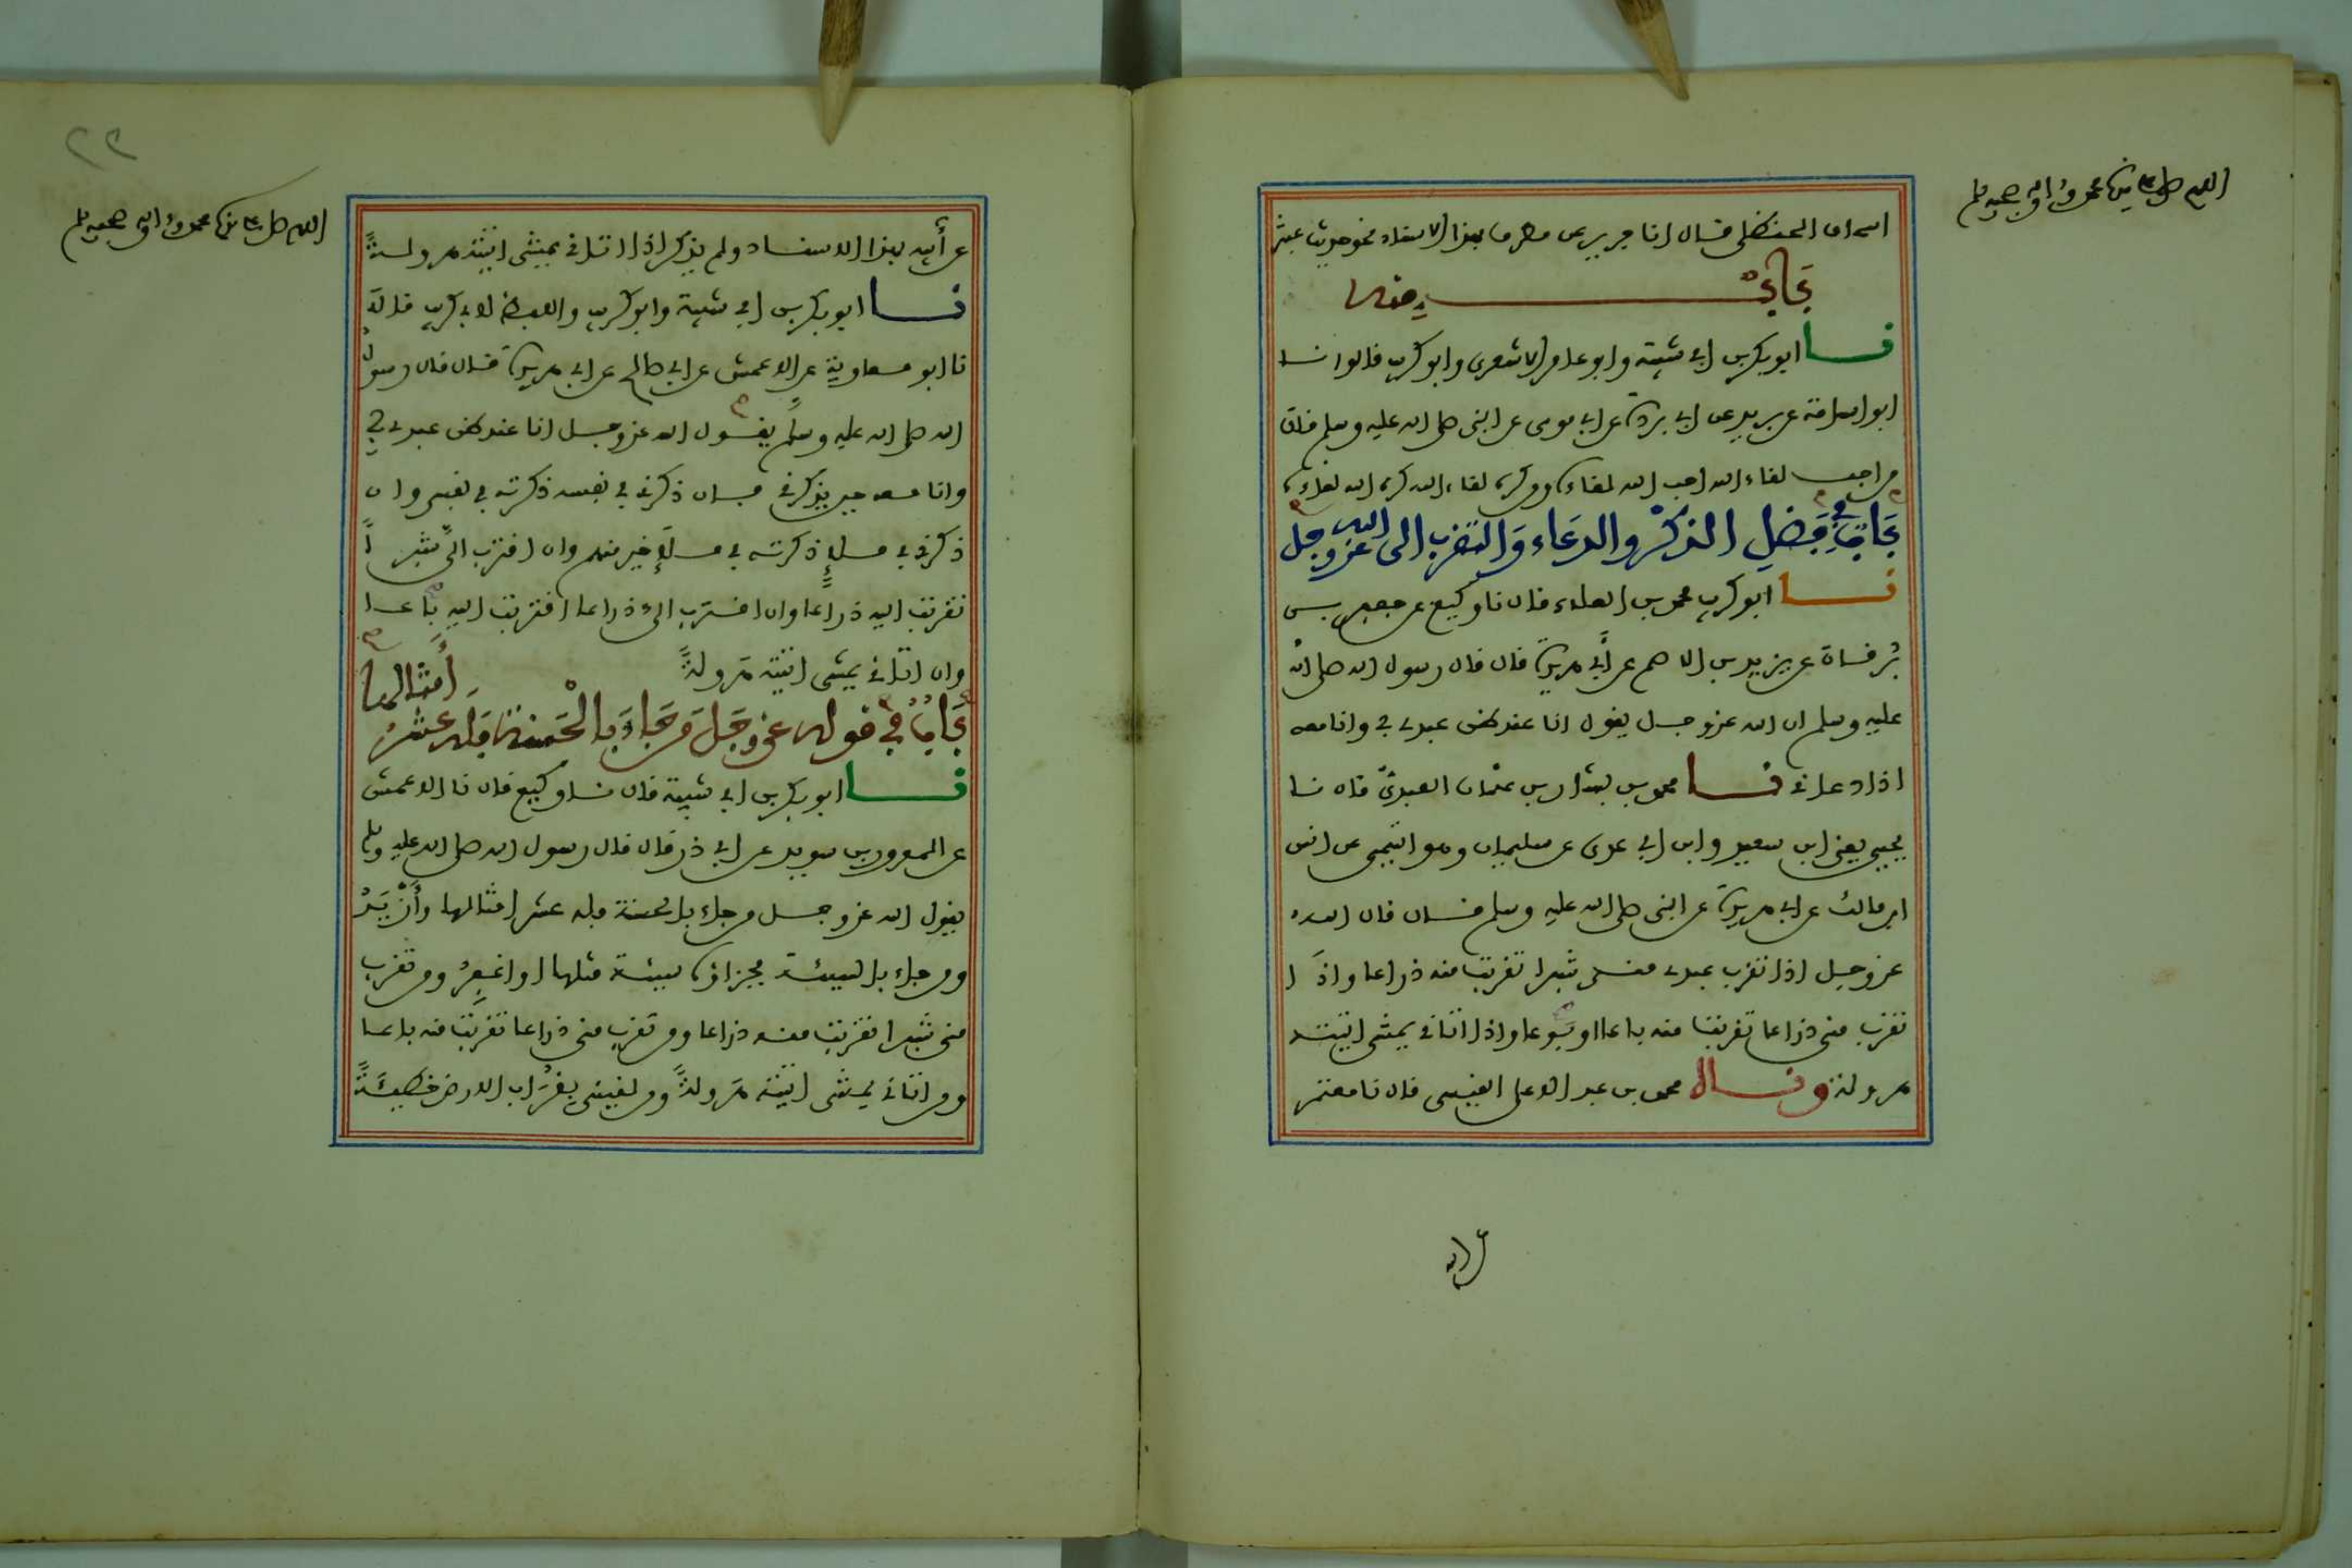 اللهم صل على سيدنا محمد وآله وصحبه وسلم
اسحاق الحنظلي قال انا جرير عن مطرف بهذا الاسناد نحو حديث عبثر
باب منه
نا ابو بكر بن ابي شيبة وابو عامر الاشعري وابو كريب قالوا نا
ابو اسامة عن بريد عن ابي بردة عن ابي موسى عن النبي صلى الله عليه وسلم قال
من احب لقاء الله احب الله لقاءه ومن كره لقاء الله كره الله لقاءه
باب في فضل الذكر والدعاء والتقرب الى الله عز وجل
نا ابو كريب محمد بن العلاء قال نا وكيع عن جعفر بن
برقان عن يزيد بن الاصم عن أبي هريرة قال قال رسول الله صلى الله
عليه وسلم ان الله عز وجل يقول انا عند ظن عبدي بي وانا معه
اذا دعاني نا محمد بن بشار بن عثمان العبدي قال نا
يحيى يعني ابن سعيد وابن ابي عدي عن سليمان وهو التيمي عن انس
ابن مالك عن ابي هريرة عن النبي صلى الله عليه وسلم قال قال الله
عز وجل اذا تقرب عبدي مني شبرا تقربت منه ذراعا واذا
تقرب مني ذراعا تقربت منه باعا او بوعا واذا اتاني يمشي اتيته
هرولة وقال محمد بن عبد الاعلى القيسي قال نا معتمر
عن ابيه
٢٢
اللهم صل على سيدنا محمد وآله وصحبه وسلم
عن أبيه بهذا الاسناد ولم يذكر اذا اتاني يمشي اتيته هرولةً
نا ابو بكر بن ابي شيبة وابو كريب واللفظ لابي كريب قالا
نا ابو معاوية عن الاعمش عن ابي صالح عن ابي هريرة قال قال رسول
الله صلى الله عليه وسلم يقول الله عز وجل انا عند ظن عبدي بي
وانا معه حين يذكرني فان ذكرني في نفسه ذكرته في نفسي وان
ذكرني في ملإ ذكرته في ملإ خير منهم وان اقترب الي شبراً
تقربت اليه ذراعا وان اقترب الي ذراعا اقتربت اليه باعا
وان اتاني يمشي اتيته هَرولةً
باب في قوله عز وجل من جاء بالحسنة فله عشر أمثالها
نا ابو بكر بن ابي شيبة قال نا وكيع قال نا الاعمش
عن المعرور بن سويد عن ابي ذر قال قال رسول الله صلى الله عليه وسلم
يقول الله عز وجل من جاء بالحسنة فله عشر امثالها وأزيد
ومن جاء بالسيئة فجزاؤه سيئة مثلها او اغفر ومن تقرب
مني شبرا تقربت منه ذراعا ومن تقرب مني ذراعا تقربت منه باعا
ومن اتاني يمشي اتيته هَرولةً ومن لقيني بقُراب الارض خطيئةً